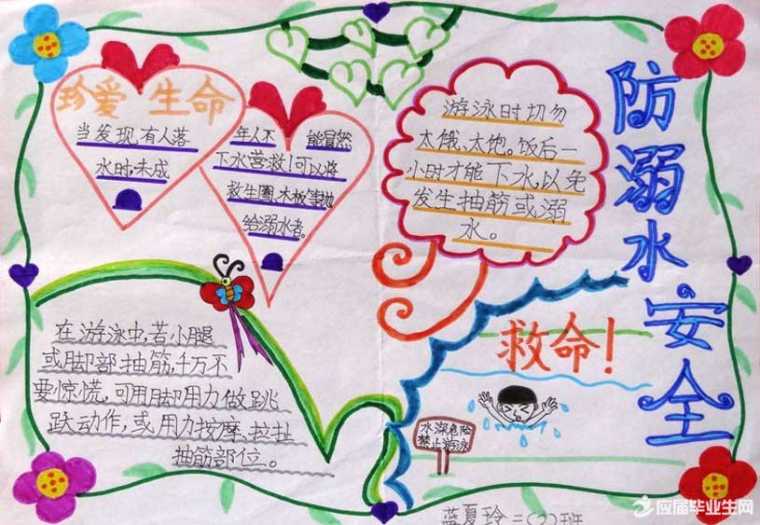 防溺水安全
珍爱 生命
当发现有人落
水时,未成
年人不 能冒然
下水营救!可以将
救生圈、木板等抛
给溺水者。
游泳时切勿
太饿、太饱。饭后一
小时才能下水,以免
发生抽筋或溺
水。
在游泳中,若小腿
或脚部抽筋,千万不
要惊慌,可用脚用力做跳
跃动作,或用力按摩、拉扯
抽筋部位。
救命!
水深危险
禁止游泳
蓝夏玲 二(2)班
应届毕业生网